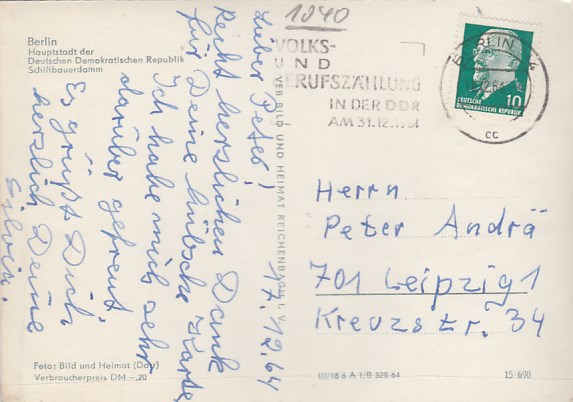 Berlin
Hauptstadt der
Deutschen Demokratischen Republik
Schiffbauerdamm
17.12.64
Lieber Peter!
Recht herzlichen Dank
für Deine hübsche Karte.
Ich habe mich sehr
darüber gefreut
Es grüßt Dich
herzlich Deine
Silvia.
Foto: Bild und Heimat (Day)
Verbraucherpreis DM -.20
VEB BILD UND HEIMAT REICHENBACH I. V.
1040
VOLKS-
UND
BERUFSZÄHLUNG
IN DER DDR
AM 31.12.1964
BERLIN 4
cc
10
DEUTSCHE
DEMOKRATISCHE REPUBLIK
Herrn
Peter Andrä
701 Leipzig 1
Kreuzstr. 34
III/18 6 A 1/B 328/64
15-690